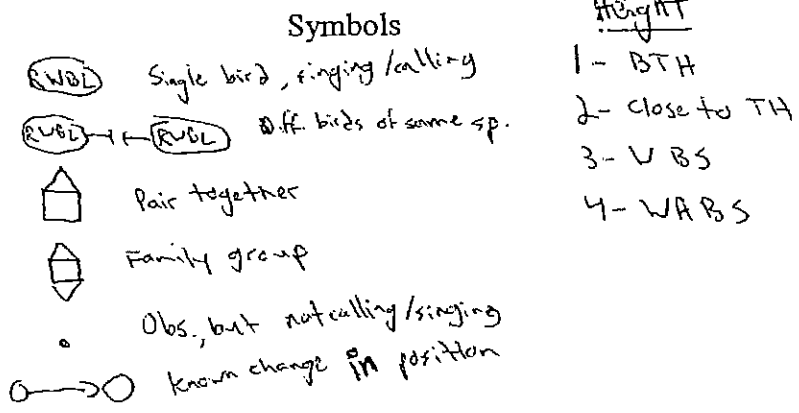 Symbols
RWBL Single bird, singing/calling
RWBL RWBL Diff. birds of same sp.
Pair together
Family group
Obs., but not calling/singing
Known change in position
Height
1- BTH
2- Close to TH
3- V BS
4- WABS